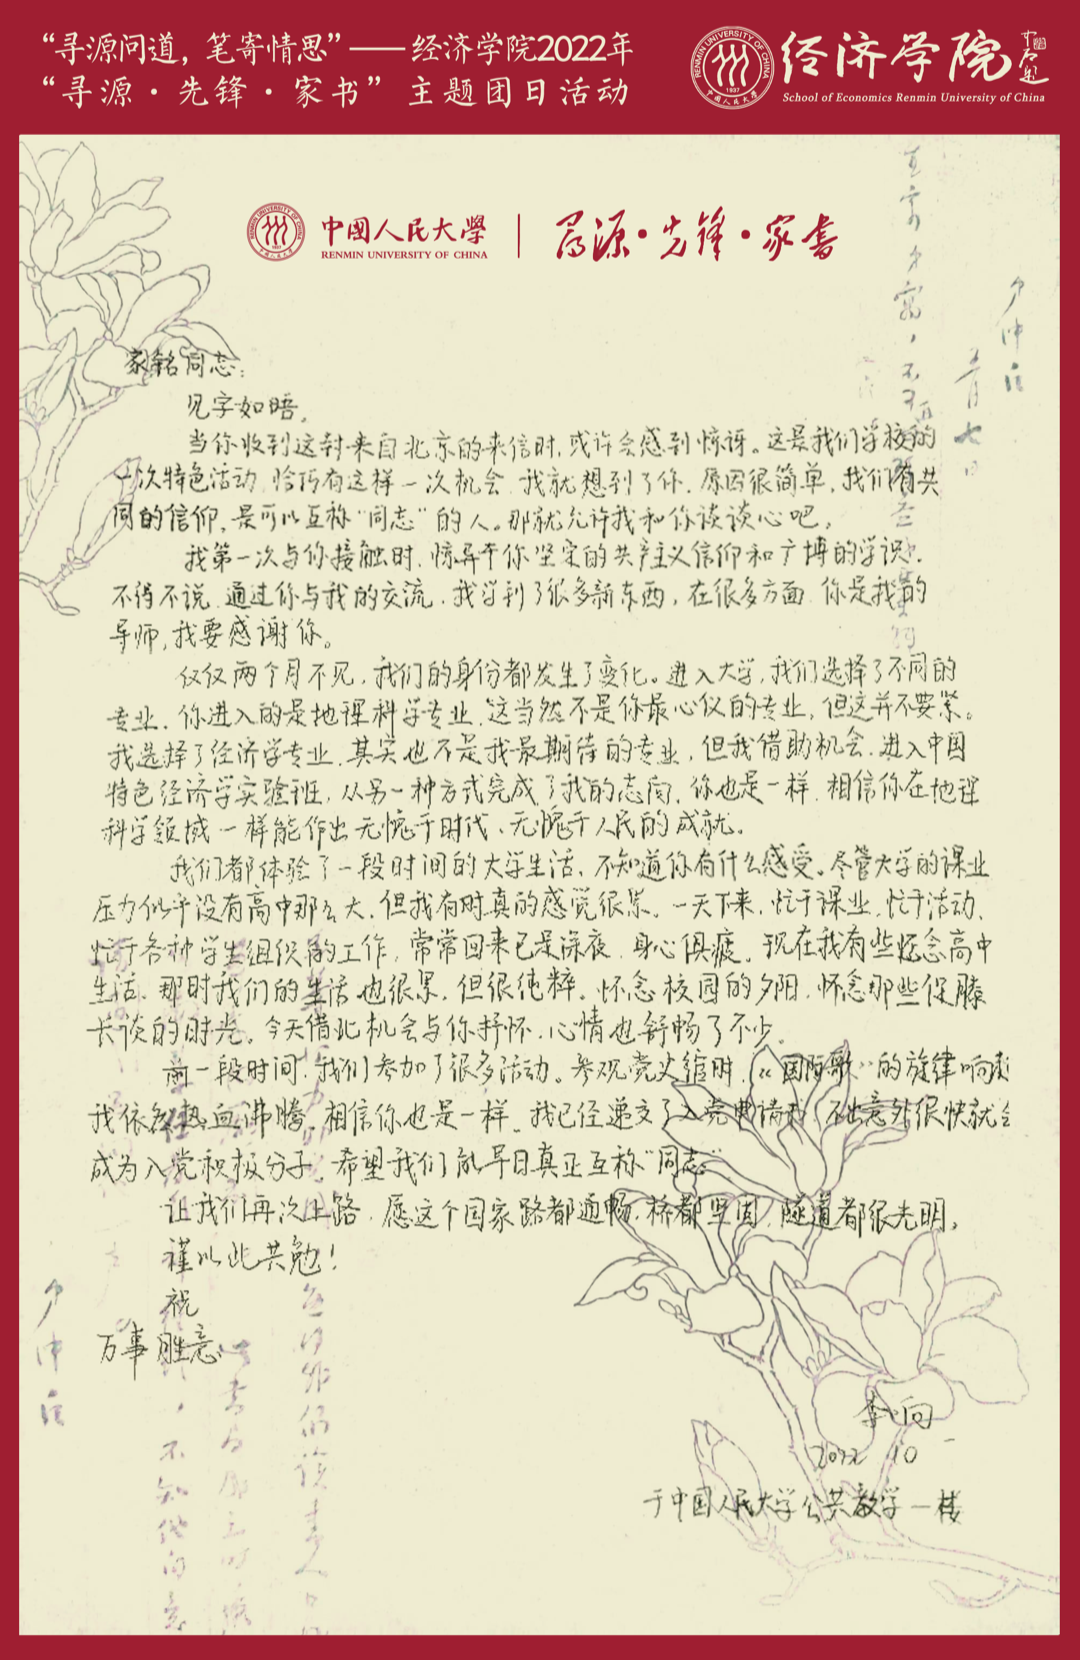 “寻源问道，笔寄情思”——经济学院2022年
“寻源·先锋·家书”主题团日活动
经济学院
School of Economics Renmin University of China
中國人民大學
RENMIN UNIVERSITY OF CHINA
寻源·先锋·家書
家铭同志：
见字如晤。
当你收到这封来自北京的来信时，或许会感到惊讶。这是我们学校的
一次特色活动，恰巧有这样一次机会，我就想到了你。原因很简单，我们有共
同的信仰，是可以互称“同志”的人。那就允许我和你谈谈心吧。
我第一次与你接触时，惊异于你坚定的共产主义信仰和广博的学识，
不得不说，通过你与我的交流，我学到了很多新东西，在很多方面，你是我的
导师，我要感谢你。
仅仅两个月不见，我们的身份都发生了变化。进入大学，我们选择了不同的
专业，你进入的是地理科学专业，这当然不是你最心仪的专业，但这并不要紧。
我选择了经济学专业，其实也不是我最期待的专业，但我借助机会，进入中国
特色经济学实验班，从另一种方式完成了我的志向，你也是一样，相信你在地理
科学领域一样能作出无愧于时代、无愧于人民的成就。
我们都体验了一段时间的大学生活，不知道你有什么感受。尽管大学的课业
压力似乎没有高中那么大，但我有时真的感觉很累。一天下来，忙于课业，忙于活动，
忙于各种学生组织的工作，常常回来已是深夜，身心俱疲。现在我有些怀念高中
生活，那时我们的生活也很累，但很纯粹。怀念校园的夕阳，怀念那些促膝
长谈的时光。今天借此机会与你抒怀，心情也舒畅了不少。
前一段时间，我们参加了很多活动。参观党史馆时，《国际歌》的旋律响起
我依然热血沸腾，相信你也是一样。我已经递交了入党申请书，不出意外很快就会
成为入党积极分子，希望我们能早日真正互称“同志”
让我们再次上路，愿这个国家路都通畅，桥都坚固，隧道都很光明。
谨以此共勉！
祝
万事胜意
李向
2022 10
于中国人民大学公共教学一楼